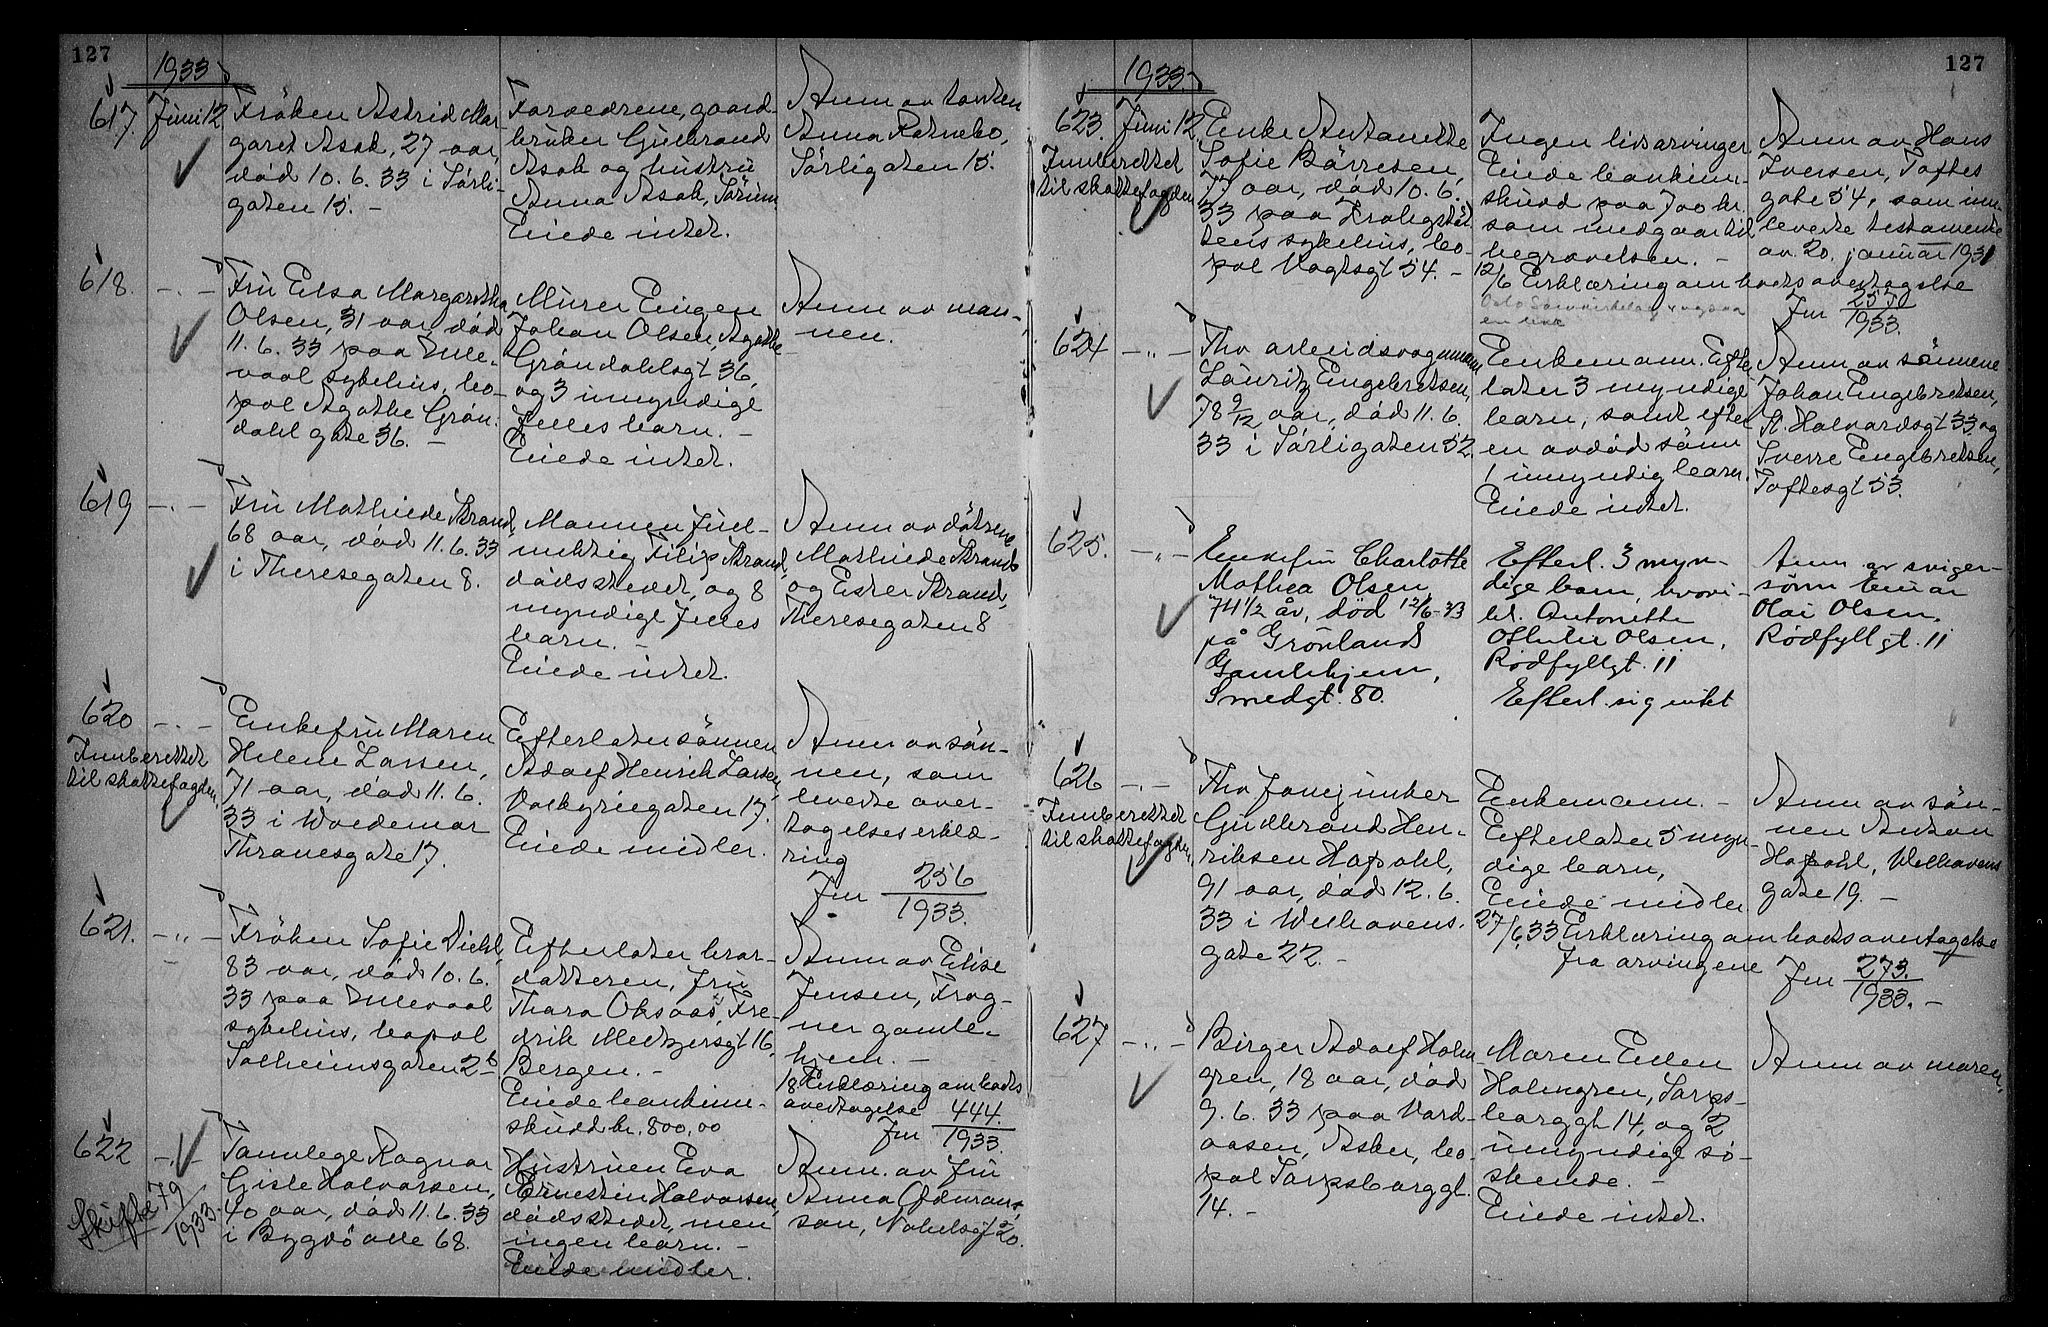 127
1933
617. Juni 12
Fröken Astrid Mar-
garet Asak, 27 aar,
död 10.6.33 i Sörli-
gaten 15. -
Foreldrene, gaard-
bruker Gudbrand
Asak og hustru
Anna Asak, Sörum.
Eiede intet.
Anm av tanten
Anna Ratnebo,
Sörligaten 15.
618. -"-
Fru Elsa Margaretha
Olsen, 31 aar, död
11.6.33 paa Ulle-
vaal sykehus, bo-
pæl Agathe Grön-
dahl gate 36. -
Murer Eugen
Johan Olsen, Agathe
Gröndahlsgt 36,
og 3 umyndige
felles barn. -
Eiede intet.
Anm av man-
nen.
619 -"-
Fru Mathilde Strand,
68 aar, död 11.6.33
i Theresegaten 8.
Mannen fuel-
mektig Filip Strand,
dödsstedet, og 8
myndige felles
barn. -
Eiede intet.
Anm av dötrene
Mathilde Strand
og Ester Strand,
Theresegaten 8
620 -"-
Innberettet
til skattefogden.
Enkefru Maren
Helene Larsen,
71 aar, död 11.6.
33 i Woldemar
Thranesgate 17.
Efterlater sönnen
Adolf Henrik Larsen,
Valkyriegaten 17.
Eiede midler.
Anm av sön-
nen, som
leverte over-
tagelseserklæ-
ring
Jnr 256
1933.
621. -"-
Fröken Sofie Diehl,
83 aar, död 10.6.
33 paa Ullevaal
sykehus, bopæl
Solheimsgaten 2b
Efterlater bror-
datteren, fru
Thora Oksaas, Fre-
drik Meltzersgt 16,
Bergen. -
Eiede bankinn-
skudd kr. 800,00
Anm av Elise
Jensen, Frog-
ner gamle-
hjem. -
Erklæring om bods
overtagelse
Jnr 444.
1933.
622 -"-
Skifte 79
1933.
Tannlege Ragnar
Gisle Halvorsen,
40 aar, död 11.6.33
i Bygdö alle 68.
Hustruen Eva
Ernestin Halvorsen,
dödsstedet, men
ingen barn. -
Eiede midler.
Anm. av fru
Anna
son, Nobelsgt 20.
127
1933.
623. Juni 12.
Innberettet
til skattefogden
Enke Antonette
Sofie Börresen,
77 aar, död 10.6.
33 paa Krohgstöt-
tens sykehus, bo-
pæl Vogtsgt 54. -
Ingen livsarvinger
Eiede bankinn-
skudd paa 700 kr.
som medgaar til
begravelsen. -
12/6 Erklæring om bods overtagelse
Anm av Hans
Iversen, Toftes
gate 54, som inn-
leverte testamente
av 20. januar 1931
Jnr 257
1933.
624 -"-
Fhv arbeidsvognmann
Lauritz Engebretsen,
78 9/12 aar, död 11.6.
33 i Sörligaten 52.
Enkemann. Efter-
later 3 myndige
barn, samt efter
en avdöd sönn
1 umyndig barn.
Eiede intet.
Anm av sönnene
Johan Engebretsen,
St. Halvardsgt 33 og
Sverre Engebretsen,
Toftesgt 53.
625. -"-
Enkefru Charlotte
Mathea Olsen
74 1/2 år, död 12/6-33
på Grönlands
Gamlehjem,
Smedgt. 80.
Efterl. 3 myn-
dige barn, hvori-
bl. Antonette
Olsen,
Rödfyllgt. 11
Efterl. sig intet
Anm. av sviger-
sönn Einar
Olai Olsen,
Rödfyllgt. 11
626 -"-
Innberettet
til skattefogden
Fhv forejunker
Gudbrand Hen-
riksen Hapahl,
91 aar, död 12.6.
33 i Welhavens-
gate 22. -
Enkemann. -
Efterlater 5 myn-
dige barn,
Eiede midler
27/6 33 Erklæring om bods overtagelse
fra arvingene
Anm av sön-
nen Anton
Hapahl, Welhavens
gate 19. -
Jnr 273.
1933. -
627 -"-
Birger Adolf Holm-
gren, 18 aar, död
9.6.33 paa Vard-
aasen, Asker, bo-
pæl Sarpsborggt.
14. -
Moren Ellen
Holmgren, Sarps-
borggt 14, og 2
umyndige sö-
skende. -
Eiede intet.
Anm av moren.